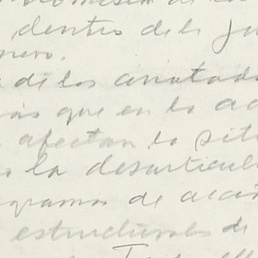 dentro de la
de los anotado
que en la ac
afectan la sit
la desarticul
gramas de acció
estructurales de